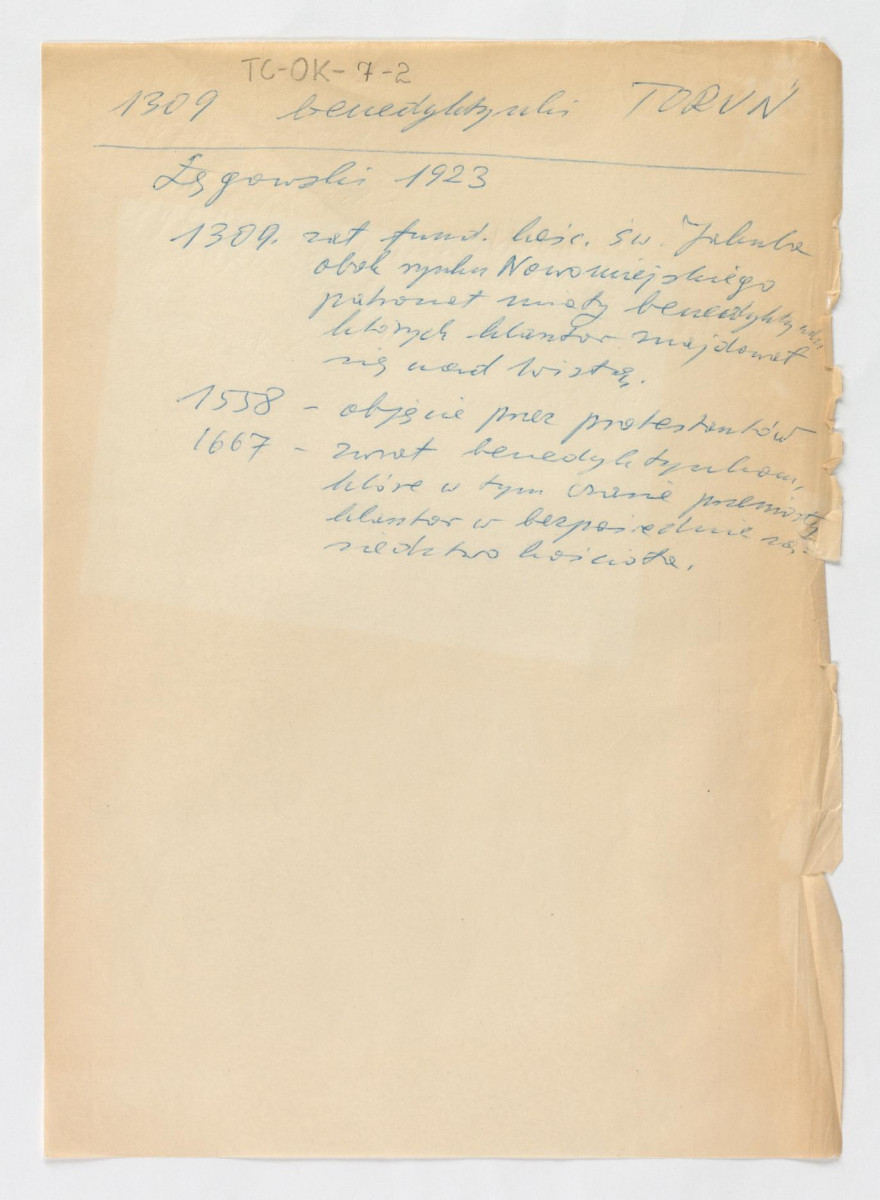 TC-OK-7-2
1309 benedyktynki TORUŃ
Łęgowski 1923
1309. zał fund. kośc. św. Jakuba
obok rynku Nowomiejskiego
patronat miały benedyktynki
których klasztor znajdował
się nad Wisłą.
1558 – objęcie przez protestantów
1667 – zwrot benedyktynkom,
które w tym czasie przeniosły
klasztor w bezpośrednie są-
siedztwo kościoła.